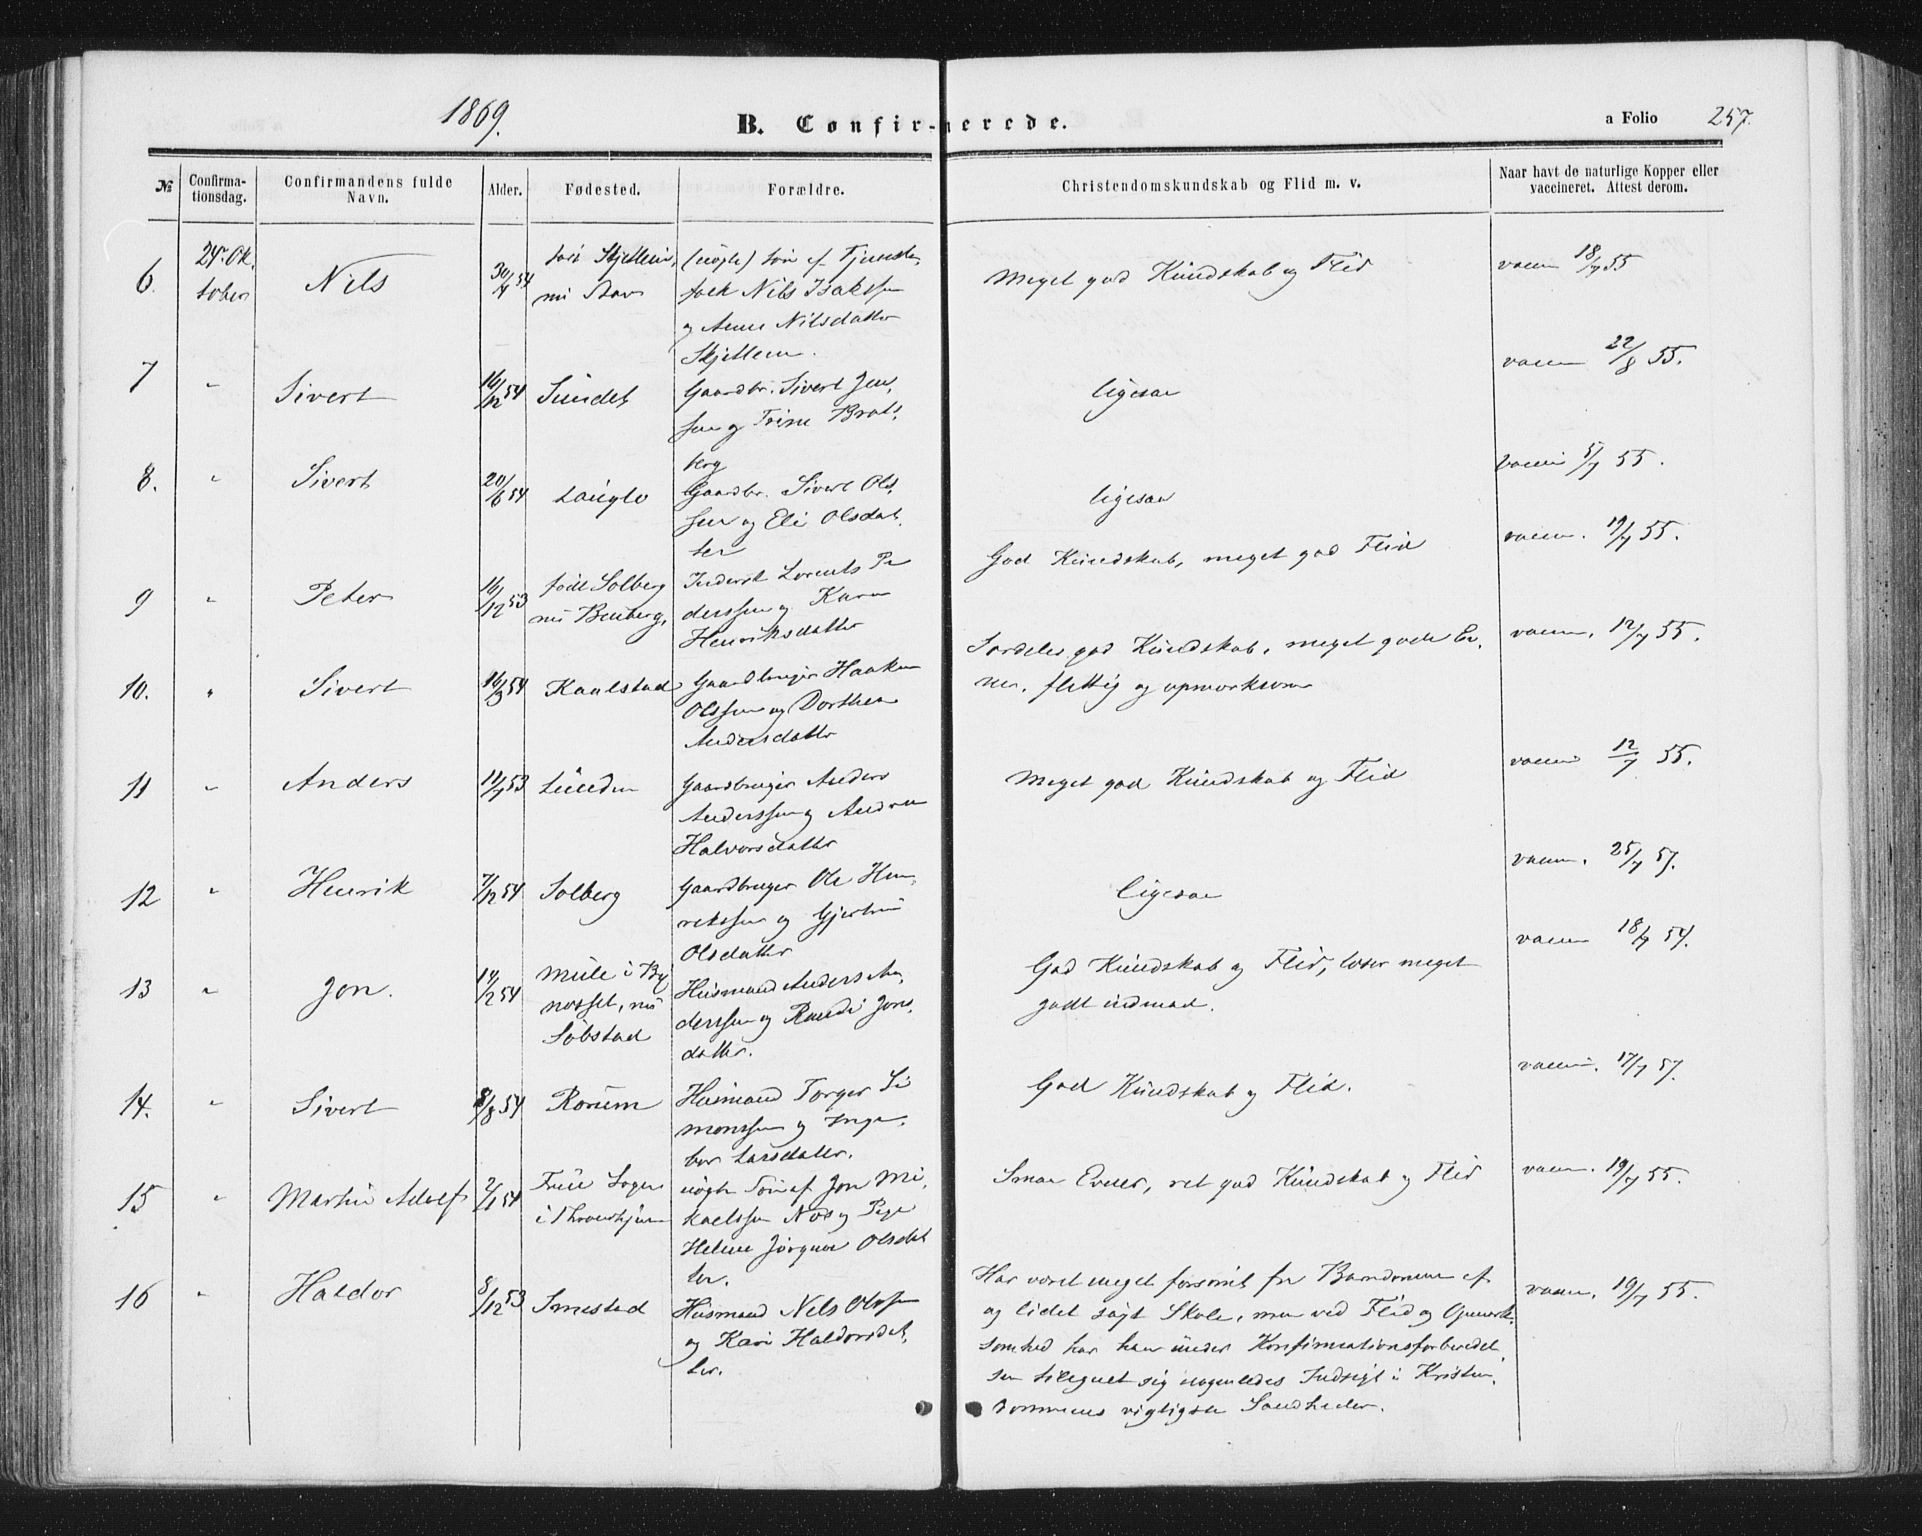 1869.
B. Confir-merede.
a Folio 257.
№
Confirma-
tionsdag.
Confirmandens fulde
Navn.
Alder.
Fødested.
Forældre.
Christendomskundskab og Flid m. v.
Naar havt de naturlige Kopper eller
vaccineret. Attest derom.
6. 24. Ok-
tober
Nils
30/4 54
nu Stav
(uægte) Søn af Tjeneste-
folk Nils Isaksen
og Anne Nilsdatter
Skjetlein.
Meget god Kundskab og Flid
vaccin 18/7 55
7 " Sivert 16/12 54 Sundet
Gaardbr. Sivert Jen-
sen og Trine Brat-
berg
ligesaa
vaccin 22/8 55.
8. " Sivert 20/6 54 Langlo
Gaardbr. Sivert Ols-
sen og Eli Olsdat-
ter
ligesaa
vaccin 5/7 55.
9 " Peter 16/12 53
født Solberg
nu Benberg.
Inderst Lorents Pe
derssen og Karen
Henriksdatter
God Kundskab, meget god Flid
vaccin. 19/7 55.
10. " Sivert 16/3 54 Kaalstad
Gaardbruger Haaken
Olssen og Dorthea
Andersdatter
Særdeles god Kundskab, meget gode Ev-
ner, flittig og opmærksom
vaccin. 12/7 55.
11 " Anders 11/7 53 Lunden
Gaardbruger Anders
Anderssen og Andrea
Halvorsdatter
Meget god Kundskab og Flid
vaccin 12/7 55.
12 " Henrik 7/12 54 Solberg
Gaardbruger Ole Hen-
rikssen og Gjertrud
Olsdatter
ligesaa
vaccin. 25/7 57.
13 " Jon. 14/2 54
Mule i By
næsset, nu
Søbstad
Husmand Anders An-
derssen og Randi Jons-
datter.
God Kundskab og Flid, læser meget
godt indenad.
vaccin 18/9 54.
14. " Sivert 8/8 54 Rørum
Husmand Torger Si
monssen og Inge-
bor Larsdatter.
God Kundskab og Flid.
vaccin. 17/7 57.
15 " Martin Adolf 2/1 54
Frue Sogn
i Throndhjem
uægte Søn af Jon Mi-
kaelssen Næs og Pige
Helene Jørgine Olsdat
ter.
Smaa Evner, ret god Kundskab og Flid
vaccin. 19/7 55.
16 " Haldor 8/12 53 Smestad
Husmand Nils Olssen
og Kari Haldorsdat-
ter.
Har været meget forsømt fra Barndommen af
og lidet søgt Skole, men ved Flid og Opmærk-
somhed har han under Konfirmationsforberedel-
sen tilegnet sig nogenledes Indsigt i Kristen-
dommens vigtigste Sandheder.
vaccin. 19/7 55.